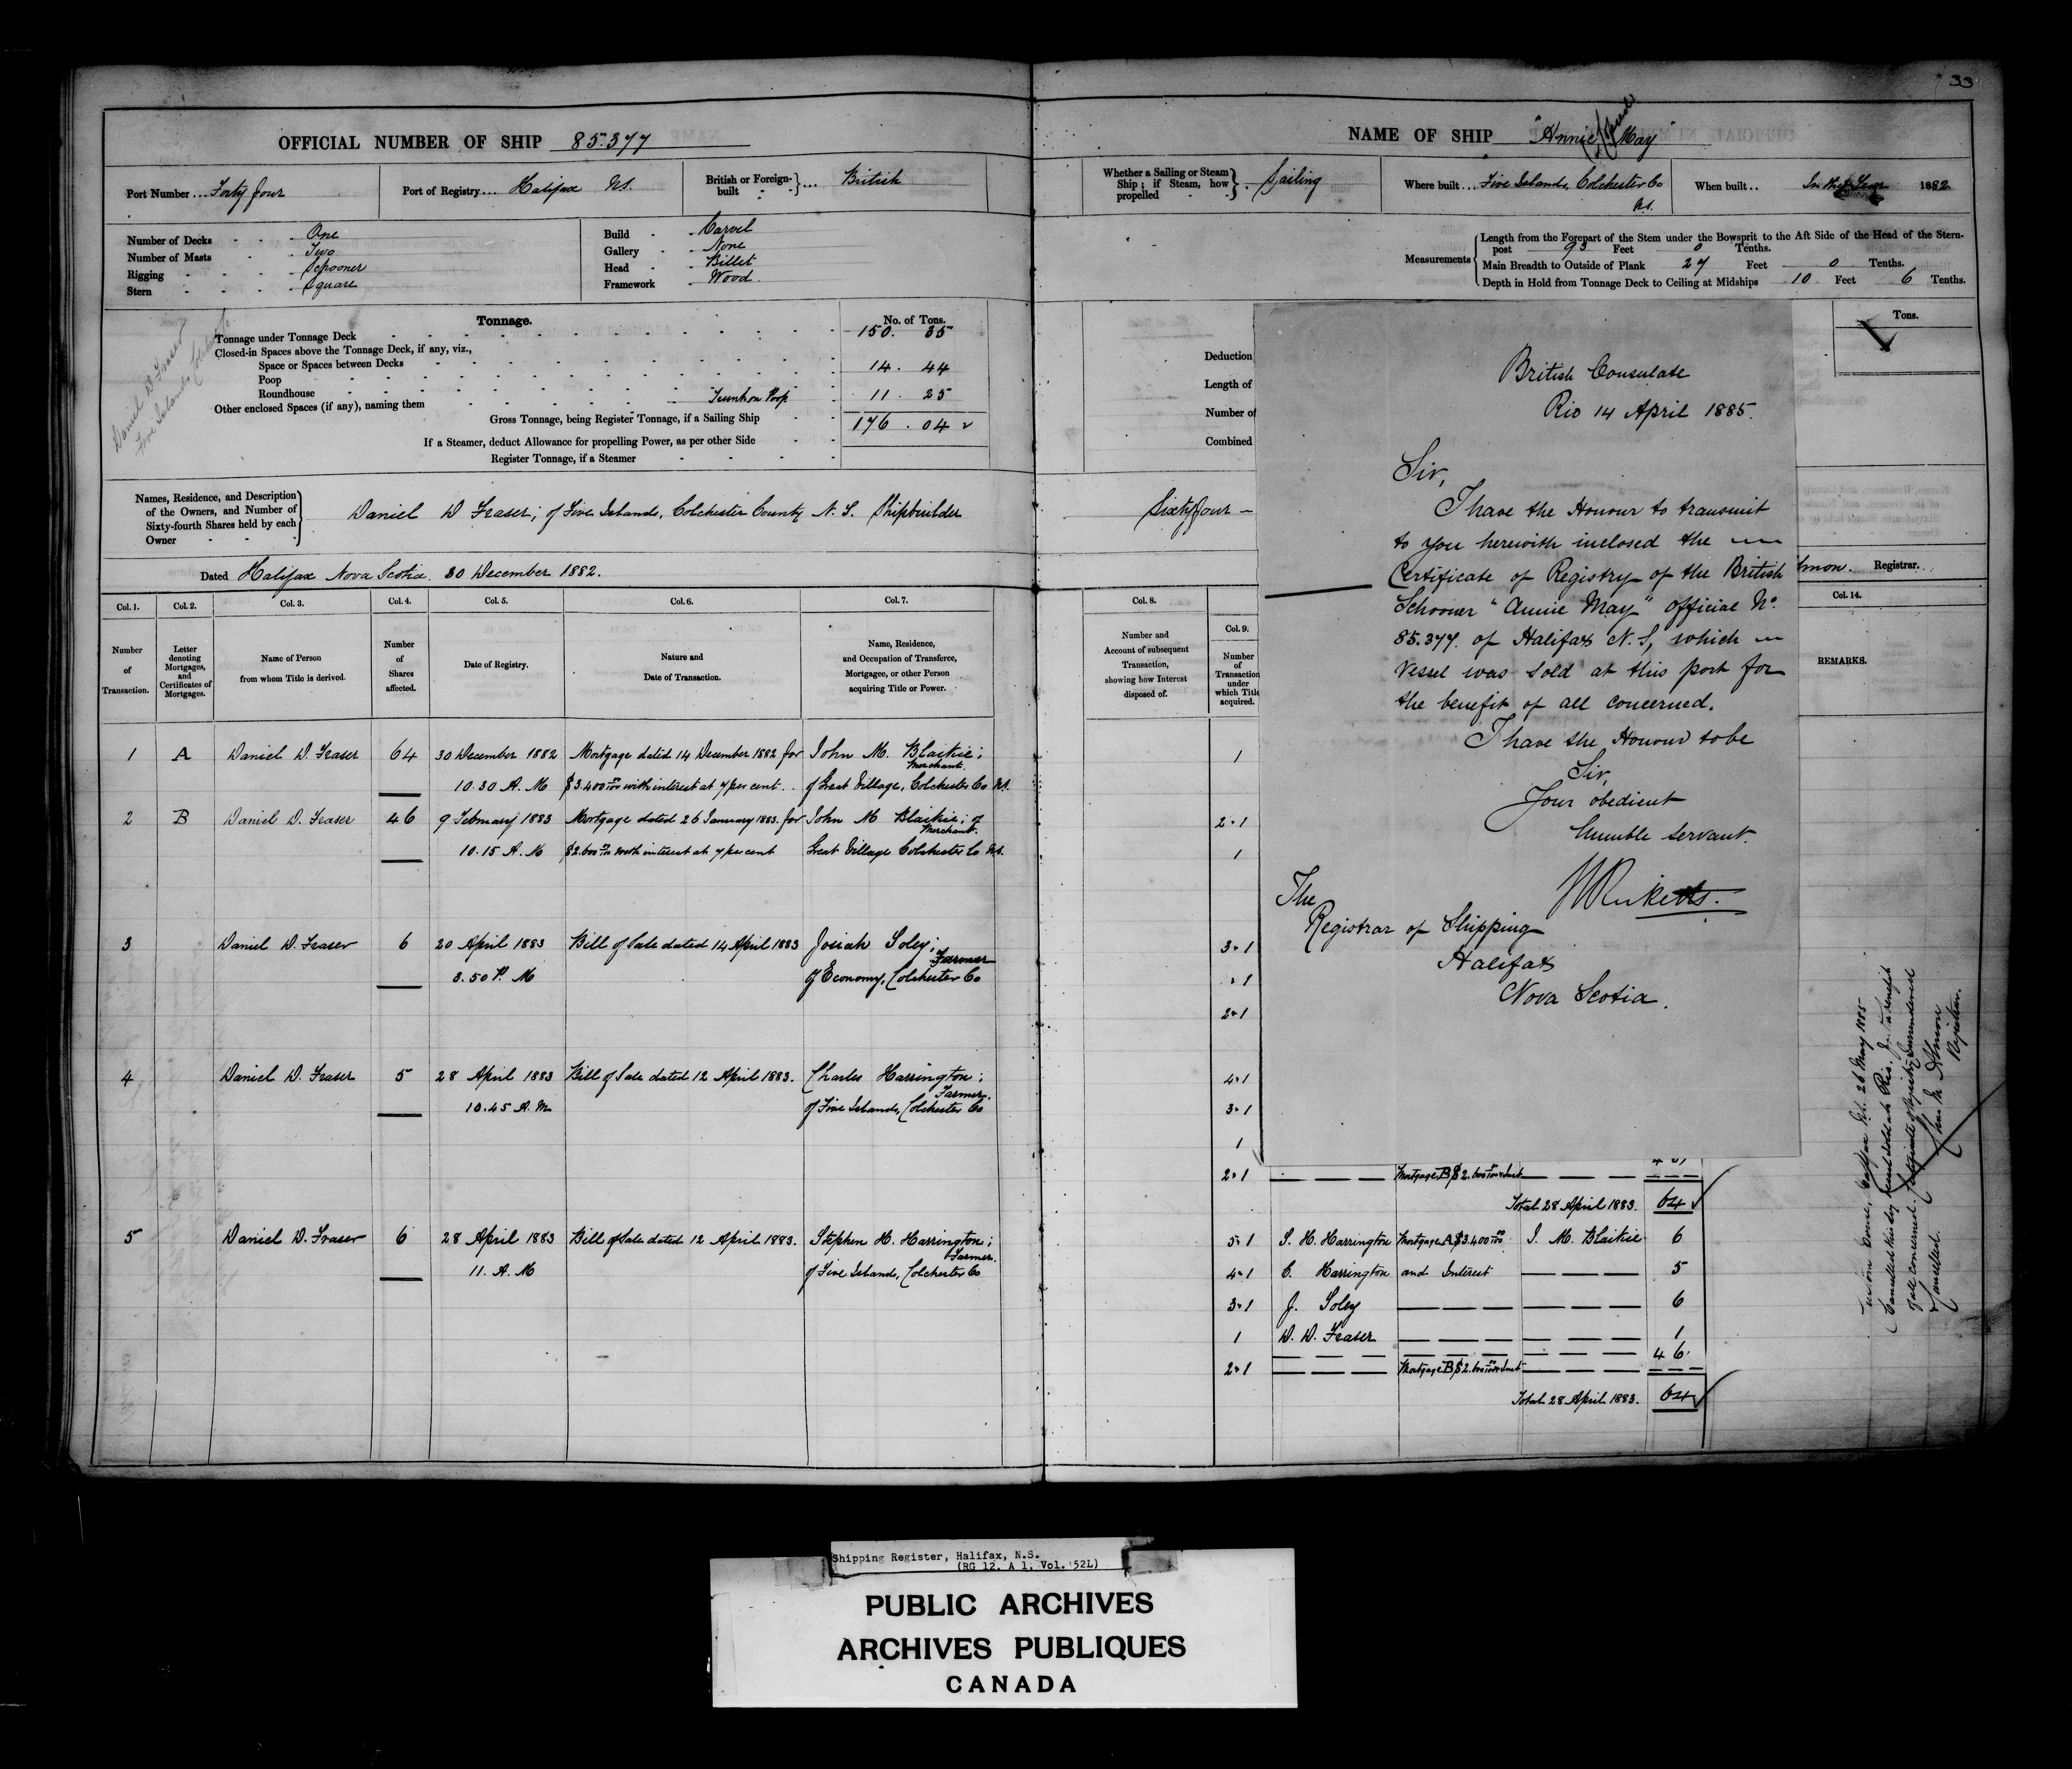 33
OFFICIAL NUMBER OF SHIP 85.377
Port Number ... Forty four
Port of Registry ... Halifax N.S.
British or Foreign-built } ... British
Number of Decks - - - One
Number of Masts - - - Two
Rigging - - - - Schooner
Stern - - - - Square
Build - - Carvel
Gallery - - None
Head - - Billet
Framework - Wood
Daniel D Fraser
Five Islands
Tonnage.
No. of Tons.
Tonnage under Tonnage Deck 150. 35
Closed-in Spaces above the Tonnage Deck, if any, viz.,
Space or Spaces between Decks 14. 44
Poop
Roundhouse
Other enclosed Spaces (if any), naming them Poop 11. 25
Gross Tonnage, being Register Tonnage, if a Sailing Ship 176. 04
If a Steamer, deduct Allowance for propelling Power, as per other Side
Register Tonnage, if a Steamer
Names, Residence, and Description
of the Owners, and Number of
Sixty-fourth Shares held by each
Owner
Daniel D Fraser; of Five Islands, Colchester County N. S. Shipbuilder
Dated Halifax Nova Scotia. 30 December 1882.
Col. 1. Col. 2. Col. 3. Col. 4. Col. 5. Col. 6. Col. 7.
Number of Transaction.
Letter denoting Mortgages, and Certificates of Mortgages.
Name of Person from whom Title is derived.
Number of Shares affected.
Date of Registry.
Nature and Date of Transaction.
Name, Residence, and Occupation of Transferee, Mortgagee, or other Person acquiring Title or Power.
1 A Daniel D. Fraser 64 30 December 1882 Mortgage dated 14 December 1882 for John M. Blaikie;
Merchant.
10.30 A. M $3.400 00/100 with interest at 7 per cent.. of Great Village, Colchester Co N.S.
2 B Daniel D. Fraser 46 9 February 1883 Mortgage dated 26 January 1883. for John M Blaikie; of
Merchant.
10.15 A. M $2.600 00/100 with interest at 7 per cent Great Village Colchester Co N.S.
3 Daniel D. Fraser 6 20 April 1883 Bill of Sale dated 14 April 1883 Josiah Soley;
Farmer
3.50 P. M of Economy, Colchester Co
4 Daniel D. Fraser 5 28 April 1883 Bill of Sale dated 12 April 1883. Charles Harrington;
Farmer.
10.45 A. M. of Five Islands, Colchester Co
5 Daniel D. Fraser 6 28 April 1883 Bill of Sale dated 12 April 1883. Stephen H. Harrington;
Farmer.
11. A. M of Five Islands, Colchester Co
NAME OF SHIP "Annie May"
Whether a Sailing or Steam Ship; if Steam, how propelled } . Sailing
Where built ... Five Islands, Colchester Co
N.S.
When built .. In the Year 1882.
Measurements
Length from the Forepart of the Stem under the Bowsprit to the Aft Side of the Head of the Stern-
post 93 Feet 0 Tenths.
Main Breadth to Outside of Plank 27 Feet 0 Tenths.
Depth in Hold from Tonnage Deck to Ceiling at Midships 10 Feet 6 Tenths.
Tons.
Deduction
Length of
Number of
Combined
Sixty four —
Registrar.
Col. 8.
Number and Account of subsequent Transaction, showing how Interest disposed of.
Col. 9.
Number of Transaction under which Title acquired.
Col. 14.
REMARKS.
British Consulate
Rio 14 April 1885.
Sir,
I have the Honour to transmit
to you herewith inclosed the
Certificate of Registry of the British
Schooner "Annie May" official No.
85.377. of Halifax N. S, which
Vessel was sold at this port for
the benefit of all concerned.
I have the Honour to be
Sir,
Your obedient
humble servant.
The
Registrar of Shipping
Halifax
Nova Scotia.
1
2 & 1
1
3 & 1
& 1
2 & 1
4 & 1
3 & 1
1
2 & 1 Mortgage B $2.600 00/100 & Inst
Total 28 April 1883. 64
5 & 1 S. H. Harrington Mortgage A $3.400 00/100 J. M. Blaikie 6
4 & 1 C. Harrington and Interest 5
3 & 1 J. Soley 6
1 D. D. Fraser 1
46.
2 & 1 Mortgage B $2.600 00/100 & Inst
Total 28 April 1883. 64
26 May 1885
Cancelled this day
of all concerned. Certificate of Registry Surrendered
Cancelled.
Registrar.
Shipping Register, Halifax, N.S.
(RG 12, A 1, Vol. 52L)
PUBLIC ARCHIVES
ARCHIVES PUBLIQUES
CANADA